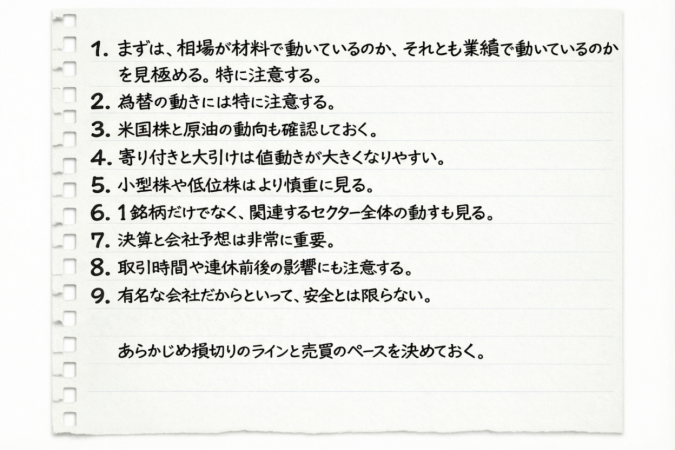 1. まずは、相場が材料で動いているのか、それとも業績で動いているのか
を見極める。特に注意する。
2. 為替の動きには特に注意する。
3. 米国株と原油の動向も確認しておく。
4. 寄り付きと大引けは値動きが大きくなりやすい。
5. 小型株や低位株はより慎重に見る。
6. 1銘柄だけでなく、関連するセクター全体の動すも見る。
7. 決算と会社予想は非常に重要。
8. 取引時間や連休前後の影響にも注意する。
9. 有名な会社だからといって、安全とは限らない。
あらかじめ損切りのラインと売買のペースを決めておく。